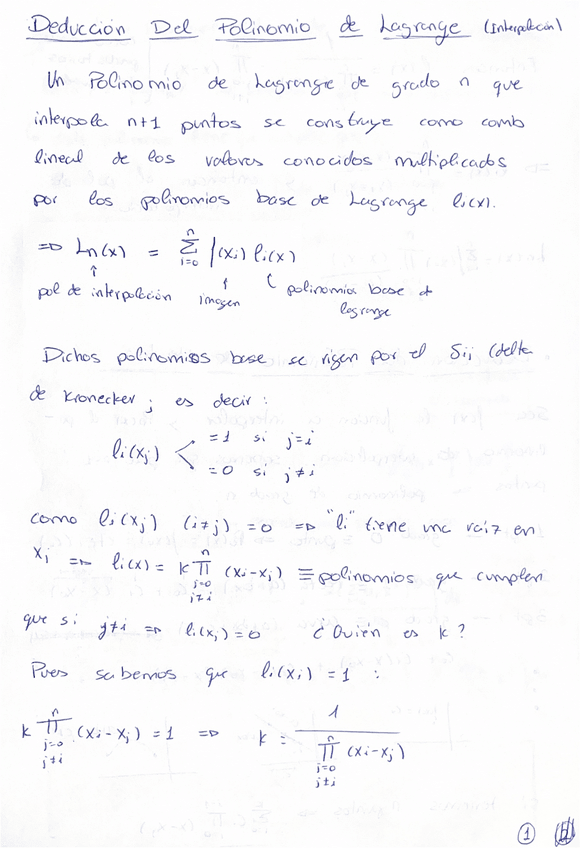 Deducción Del Polinomio de Lagrange (Interpolación)
Un Polinomio de Lagrange de grado n que
interpola n+1 puntos se construye como comb
lineal de los valores conocidos multiplicados
por los polinomios base de Lagrange li(x).
=> Ln(x) = Σ_{i=0}^{n} f(xi) li(x)
pol de interpolación imagen polinomios base de
lagrange
Dichos polinomios base se rigen por el δij (delta
de Kronecker; es decir:
li(xj) =1 si j=i
=0 si j≠i
como li(xj) (i≠j) = 0 => "li" tiene una raíz en
xj => li(x) = k ∏_{j=0, j≠i}^{n} (x-xj) ≡ polinomios que cumplen
que si j≠i => li(xj) = 0 ¿Quién es k?
Pues sabemos que li(xi) = 1 :
k ∏_{j=0, j≠i}^{n} (xi-xj) = 1 => k = 1 / ∏_{j=0, j≠i}^{n} (xi-xj)
1